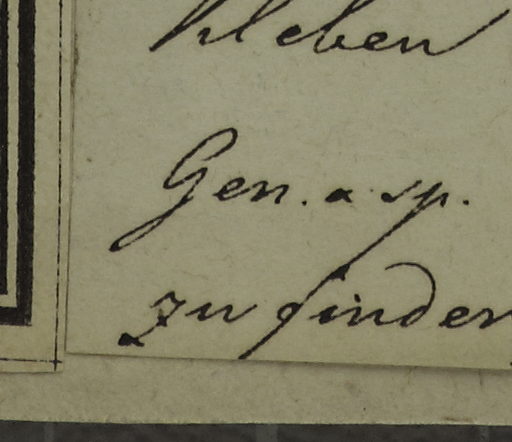 kleben
Gen. a sp.
zu finden